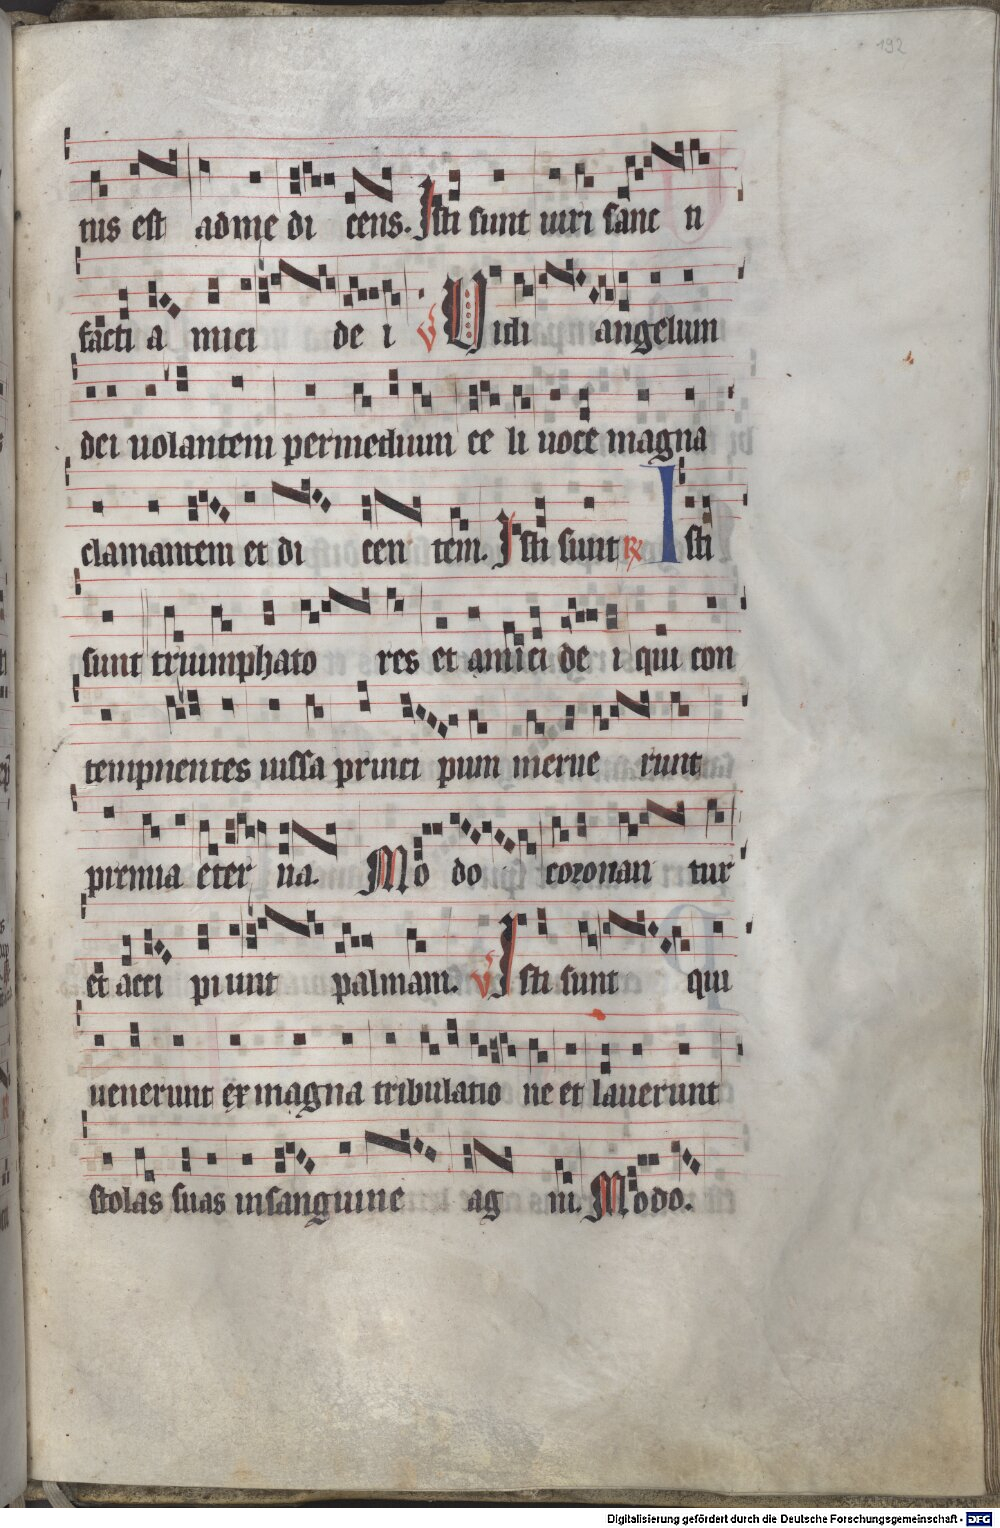 192
tus est ad me di cens. Isti sunt uiri sanc ti
facti a mici de i V Uidi angelum
dei uolantem per medium ce li uoce magna
clamantem et di cen tem. Isti sunt R Isti
sunt triumphato res et amici de i qui con
tempnentes iussa princi pum merue runt
premia eter na. Modo coronan tur
et acci piunt palmam. V Isti sunt qui
uenerunt ex magna tribulatio ne et lauerunt
stolas suas in sanguine ag ni. Modo.
Digitalisierung gefördert durch die Deutsche Forschungsgemeinschaft - DFG